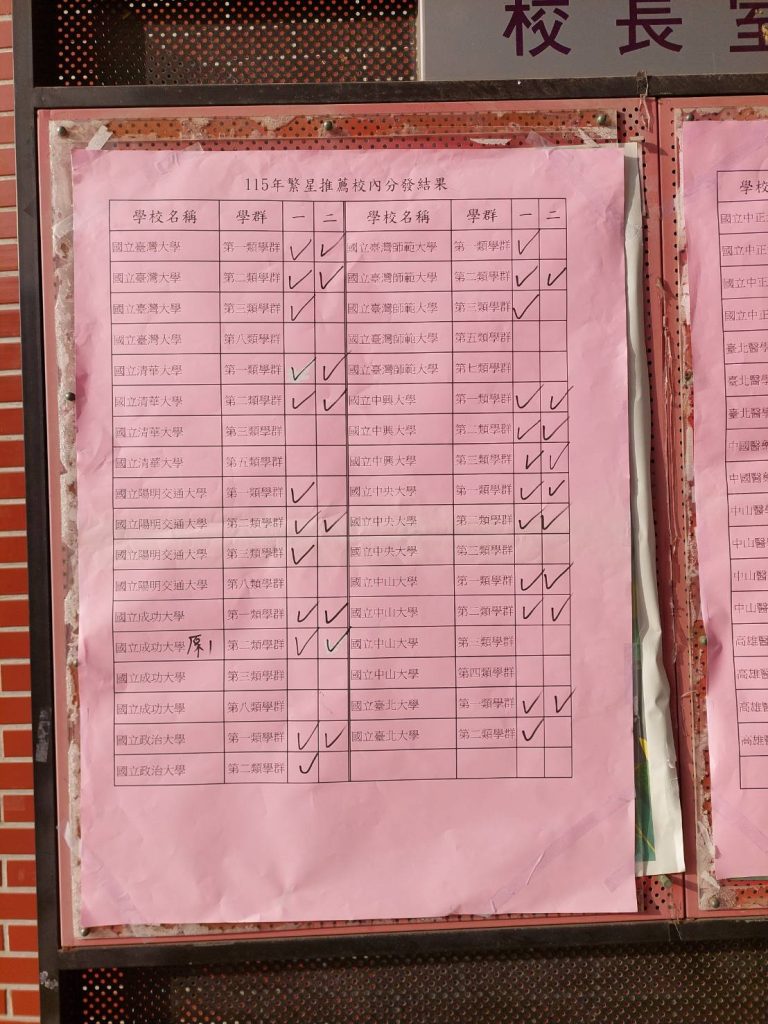 校長室
115年繁星推薦校內分發結果
學校名稱 學群 一 二 學校名稱 學群 一 二
國立臺灣大學 第一類學群 ✓ ✓ 國立臺灣師範大學 第一類學群 ✓
國立臺灣大學 第二類學群 ✓ ✓ 國立臺灣師範大學 第二類學群 ✓ ✓
國立臺灣大學 第三類學群 ✓ 國立臺灣師範大學 第三類學群 ✓
國立臺灣大學 第八類學群 國立臺灣師範大學 第五類學群
國立清華大學 第一類學群 ✓ ✓ 國立臺灣師範大學 第七類學群
國立清華大學 第二類學群 ✓ ✓ 國立中興大學 第一類學群 ✓ ✓
國立清華大學 第三類學群 國立中興大學 第二類學群 ✓ ✓
國立清華大學 第五類學群 國立中興大學 第三類學群 ✓ ✓
國立陽明交通大學 第一類學群 ✓ 國立中央大學 第一類學群 ✓ ✓
國立陽明交通大學 第二類學群 ✓ ✓ 國立中央大學 第二類學群 ✓ ✓
國立陽明交通大學 第三類學群 ✓ 國立中央大學 第三類學群
國立陽明交通大學 第八類學群 國立中山大學 第一類學群 ✓ ✓
國立成功大學 第一類學群 ✓ ✓ 國立中山大學 第二類學群 ✓ ✓
國立成功大學 原1 第二類學群 ✓ ✓ 國立中山大學 第三類學群
國立成功大學 第三類學群 國立中山大學 第四類學群
國立成功大學 第八類學群 國立臺北大學 第一類學群 ✓ ✓
國立政治大學 第一類學群 ✓ ✓ 國立臺北大學 第二類學群 ✓
國立政治大學 第二類學群 ✓
學校
國立中正
國立中正
國立中正
國立中正
臺北醫學
臺北醫學
臺北醫學
中國醫藥
中國醫藥
中山醫學
中山醫
中山醫
中山醫
高雄醫
高雄醫
高雄醫
高雄醫